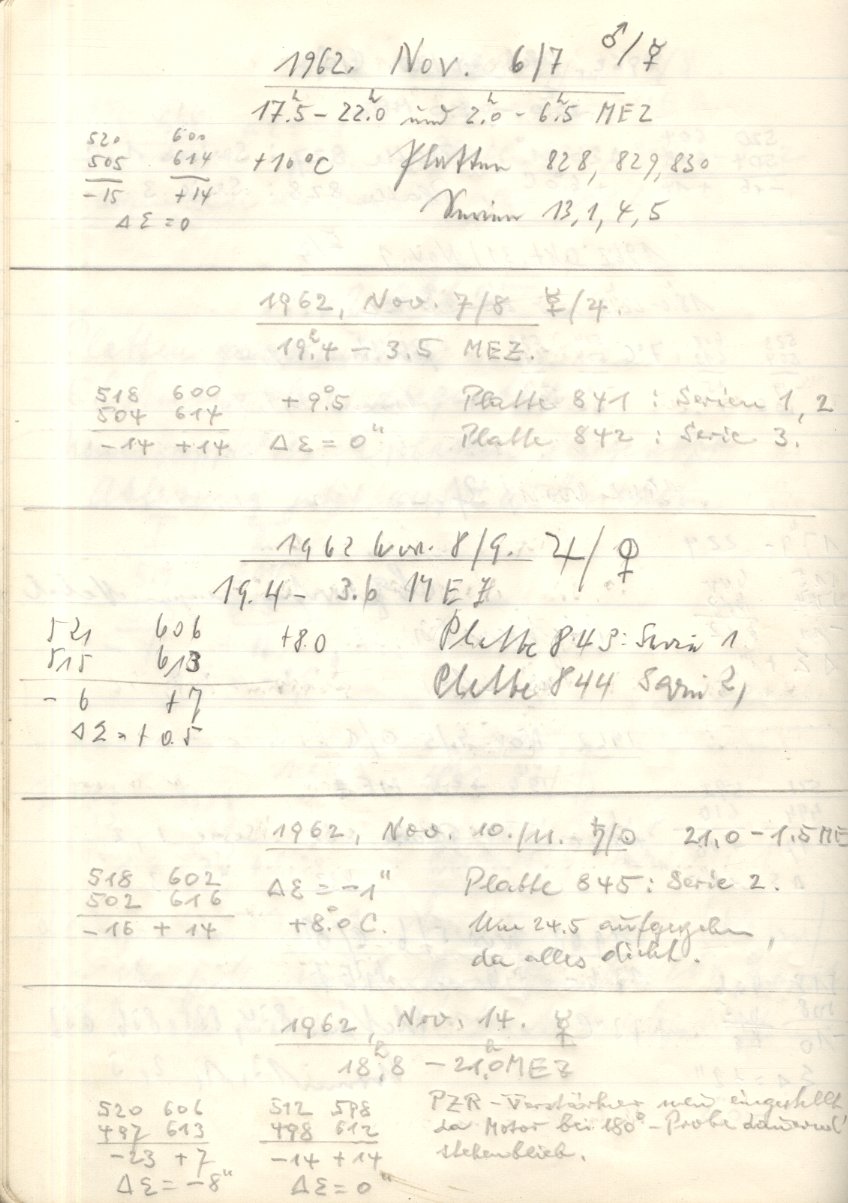 1962. Nov. 6/7 ♂/☿
17h.5 – 22h.0 und 2h.0 – 6h.5 MEZ
520 600
505 614 +10°C Platten 828, 829, 830
-15 +14 Serien 13, 1, 4, 5
Δε = 0
1962, Nov. 7/8 ☿/♃.
19h.4 – 3.5 MEZ.
518 600 +9°.5 Platte 841 : Serien 1, 2
504 614 Platte 842 : Serie 3.
-14 +14 Δε = 0"
1962 Nov. 8/9. ♃/♀
19.4 – 3.6 MEZ
521 606 +8.0 Platte 843: Serie 1
515 613
- 6 +7 Platte 844 Serie 2,
Δε = + 0.5
1962, Nov. 10./11. ♄/⊙ 21.0 – 1.5 ME
518 602 Δε = -1" Platte 845 : Serie 2.
502 616
-16 + 14 +8°.0 C. Um 24.5 aufgegeben,
da alles dicht.
1962, Nov. 14. ☿
18h.8 – 21h.0 MEZ
520 606 512 598 PZR - Verstärker neu eingestellt
497 613 498 612 da Motor bei 180° - Probe dauernd
-23 +7 -14 +14 stehenblieb.
Δε = -8" Δε = 0"